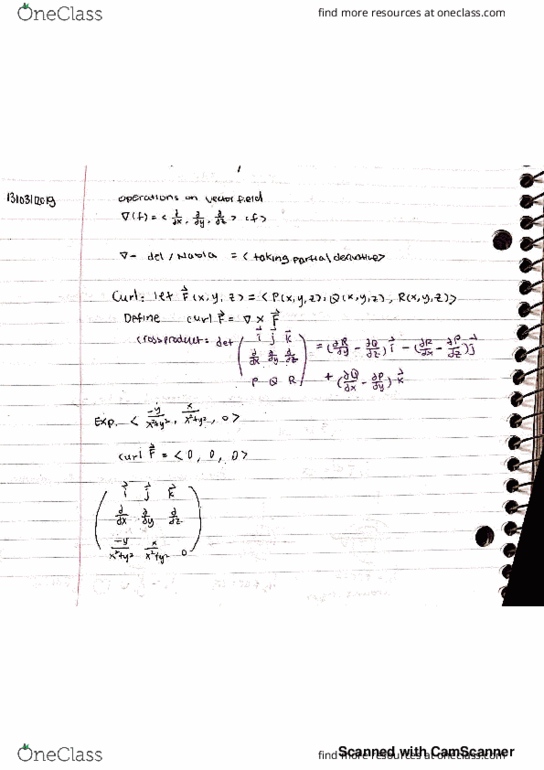 OneClass
find more resources at oneclass.com
1
13/03/2019
operations on vector field
∇(f) = < ∂/∂x, ∂/∂y, ∂/∂z > (f)
∇ - del / Nabla = < taking partial derivative>
Curl: let F⃗(x, y, z) = <P(x,y,z), Q(x,y,z), R(x,y,z)>
Define curl F⃗ = ∇ × F⃗
cross product: det ( i⃗ j⃗ k⃗
∂/∂x ∂/∂y ∂/∂z
P Q R ) = (∂R/∂y - ∂Q/∂z) i⃗ - (∂R/∂x - ∂P/∂z) j⃗
+ (∂Q/∂x - ∂P/∂y) k⃗
Exp. < -y/x²+y², x/x²+y², 0 >
curl F⃗ = < 0, 0, 0>
( i⃗ j⃗ k⃗
∂/∂x ∂/∂y ∂/∂z
-y/x²+y² x/x²+y² 0 )
OneClass
find more resources at oneclass.com
Scanned with CamScanner